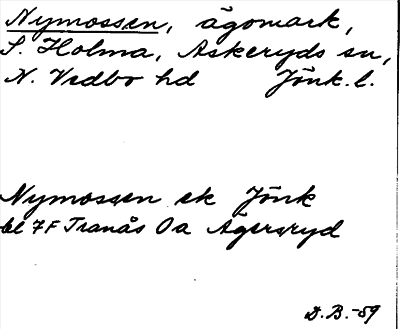 Nymossen, ägomark,
S. Holma, Askeryds sn,
N. Vedbo hd Jönk. l.
Nymossen ek Jönk
bl 7F Tranås 0a Ägersryd
D.B.-59